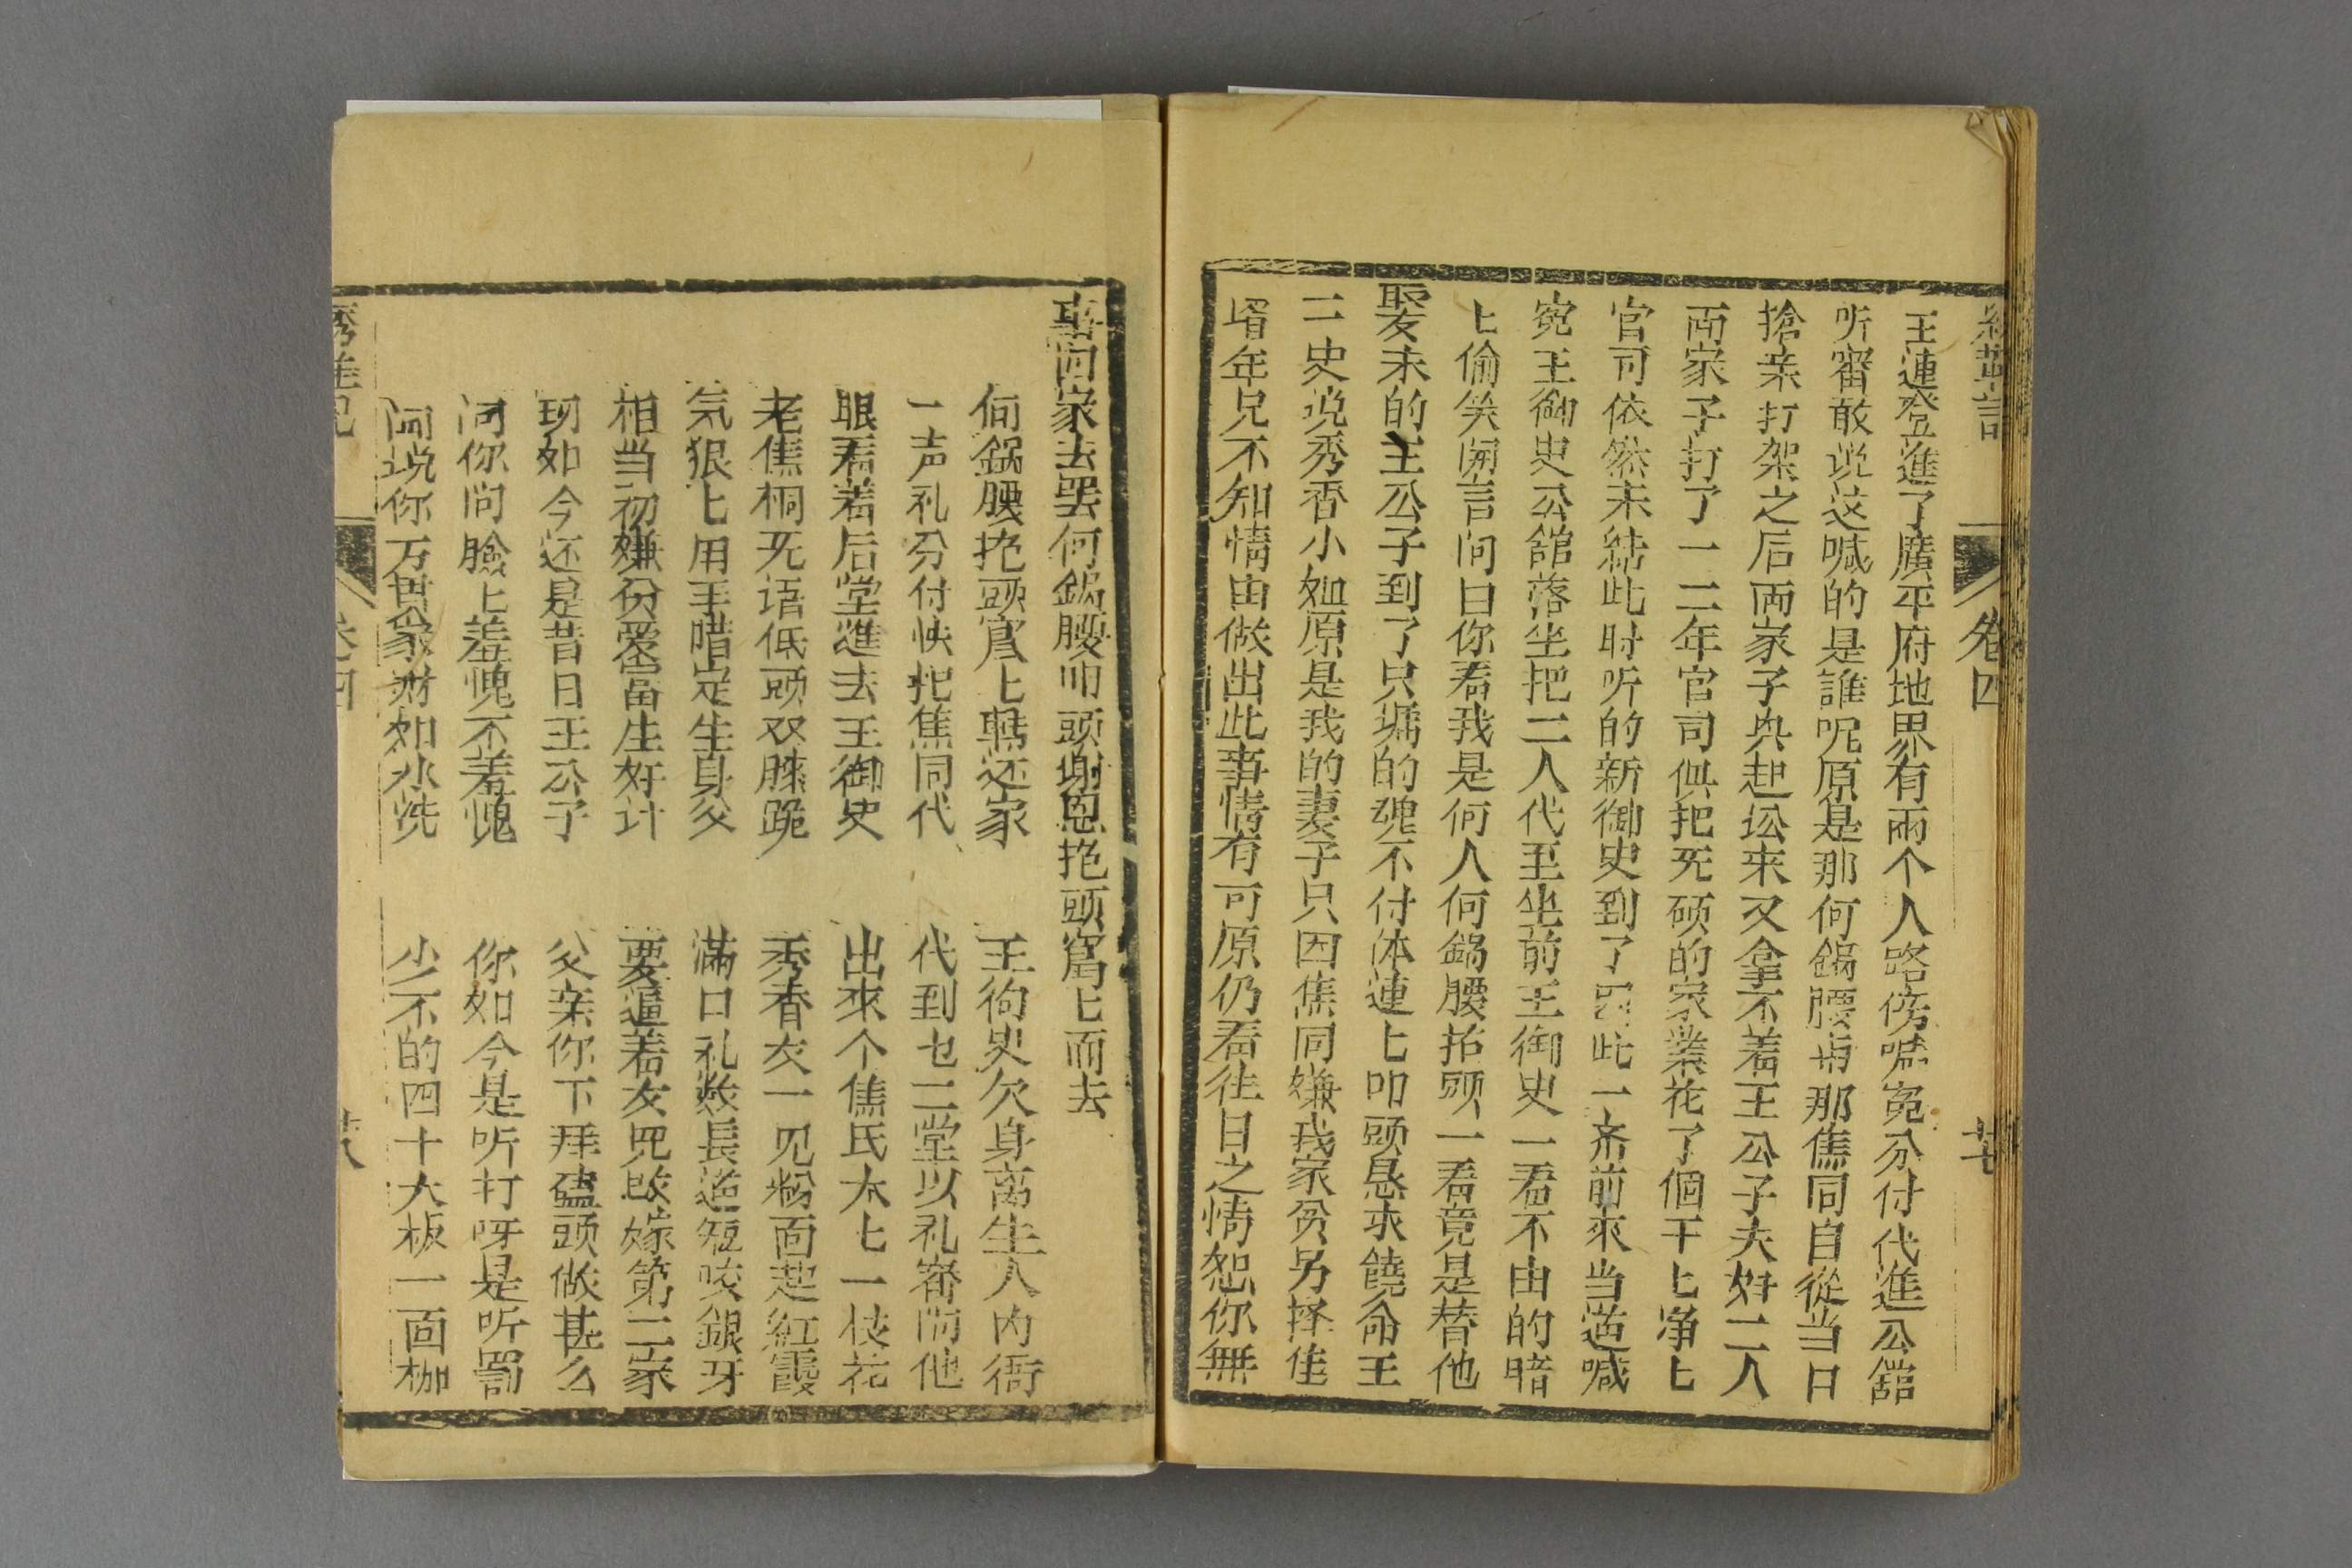 卷四
王連登進了廣平府地界有兩个人路傍喊寃分付代進公舘
听審敢说这喊的是誰呢原是那何鍋腰与那焦同自從当日
搶亲打架之后両家子兴起讼來又拿不着王公子夫妇二人
両家子打了一二年官司俱把死硕的家業花了個干匕净匕
官司依然未結此时听的新御史到了因此一齐前來当道喊
寃王御史公舘落坐把二人代至坐前王御史一看不由的暗
匕偷笑開言问曰你看我是何人何鍋腰招頭一看竟是替他
娶友未的王公子到了只諕的魂不付体連匕叩頭恳求饒命王
二史说秀香小姐原是我的妻子只因焦同嫌我家贫另择佳
壻年兄不知情由做出此事情有可原仍看往日之情恕你無
罪回家去罢何鍋腰叩頭謝恩抱頭窩匕而去
何鍋腰抱頭窩匕轉还家 王御史欠身离坐入内衙
一声礼分付快把焦同代 代到也二堂以礼審问他
眼看着后堂進去王御史 出來个焦氏太匕一枝花
老焦桐死语低頭双膝跪 秀香女一见粉面起紅霞
気狠匕用手啃定生身父 滿口礼数長道短咬銀牙
相当初嫌贫爱富生奸计 要逼着女児改嫁第二家
到如今还是昔日王公子 父亲你下拜磕頭做甚么
问你问臉上羞愧不羞愧 你如今是听打呀是听罰
问说你万贯家财如水洗 少不的四十大板一面枷
卷四